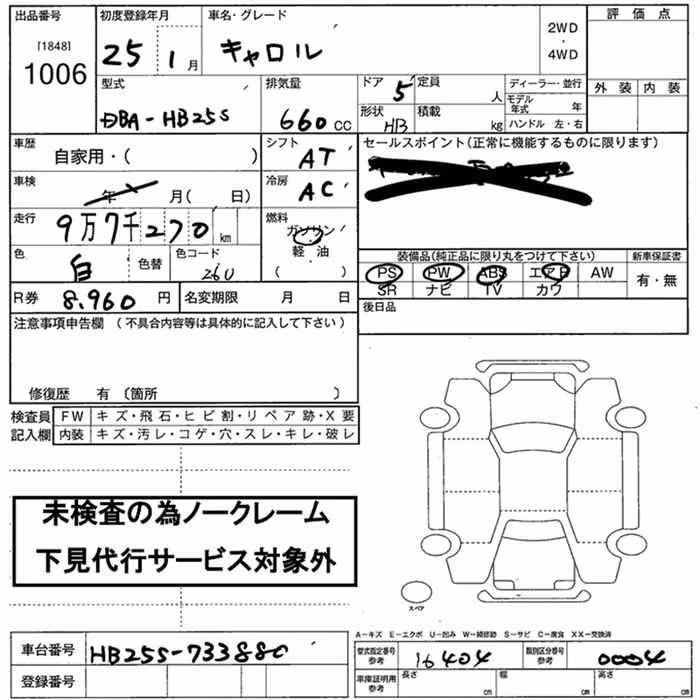 出品番号 初度登録年月 車名・グレード 2WD ・ 4WD 評価点
[1848] 1006 25 1月 キャロル 外装 内装
型式 排気量 ドア 5 定員 人 ディーラー・並行
DBA-HB25S 660cc 形状 HB 積載 kg モデル年式 年
ハンドル 左・右
車歴 自家用・( ) シフト AT セールスポイント(正常に機能するものに限ります)
車検 年 月( 日) 冷房 AC
走行 9万7千270km 燃料 ガソリン
軽・油
( )
色 白 色替 色コード 26U
装備品(純正品に限り丸をつけて下さい) 新車保証書
PS PW ABS エアB AW 有・無
SR ナビ TV カワ
R券 8,960円 名変期限 月 日 後日品
注意事項申告欄 (不具合内容等は具体的に記入して下さい)
修復歴 有 〔箇所 〕
検査員 FW キズ・飛石・ヒビ割・リペア跡・X要
記入欄 内装 キズ・汚レ・コゲ・穴・スレ・キレ・破レ
未検査の為ノークレーム
下見代行サービス対象外
スペア
A－キズ E－エクボ U－凹み W－補修跡 S－サビ C－腐食 XX－交換済
車台番号 HB25S-733880 型式指定番号 参考 16404 類別区分番号 参考 0004
登録番号 車庫証明用 参考 長さ cm 幅 cm 高さ cm